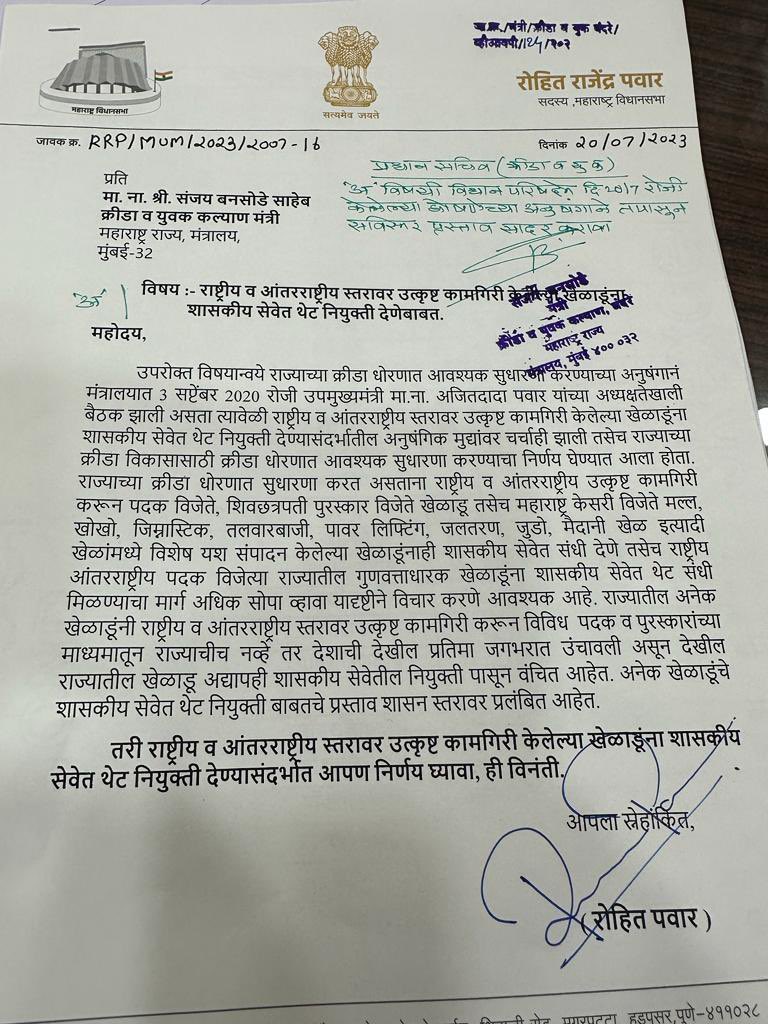 जा.क्र./मंत्री/क्रीडा व युक बंदरे/
व्हीआयपी/124/२०२
महाराष्ट्र विधानसभा
सत्यमेव जयते
रोहित राजेंद्र पवार
सदस्य ,महाराष्ट्र विधानसभा
जावक क्र. RRP/MUM/2023/2007-16
दिनांक 20/07/2023
प्रधान सचिव (क्रीडा व युक)
'अ' विषयी विधान परिषदेत दि २०/7 रोजी
केलेल्या घोषणेच्या अनुषंगाने तपासून
सविस्तर प्रस्ताव सादर करावा
प्रति
मा. ना. श्री. संजय बनसोडे साहेब
क्रीडा व युवक कल्याण मंत्री
महाराष्ट्र राज्य, मंत्रालय,
मुंबई-32
संजय बनसोडे
मंत्री
क्रीडा व युवक कल्याण, बंदरे
महाराष्ट्र राज्य
मंत्रालय, मुंबई ४०० ०३२
'अ'
विषय :- राष्ट्रीय व आंतरराष्ट्रीय स्तरावर उत्कृष्ट कामगिरी केलेल्या खेळाडूंना
शासकीय सेवेत थेट नियुक्ती देणेबाबत.
महोदय,
उपरोक्त विषयान्वये राज्याच्या क्रीडा धोरणात आवश्यक सुधारणा करण्याच्या अनुषंगानं
मंत्रालयात 3 सप्टेंबर 2020 रोजी उपमुख्यमंत्री मा.ना. अजितदादा पवार यांच्या अध्यक्षतेखाली
बैठक झाली असता त्यावेळी राष्ट्रीय व आंतरराष्ट्रीय स्तरावर उत्कृष्ट कामगिरी केलेल्या खेळाडूंना
शासकीय सेवेत थेट नियुक्ती देण्यासंदर्भातील अनुषंगिक मुद्यांवर चर्चाही झाली तसेच राज्याच्या
क्रीडा विकासासाठी क्रीडा धोरणात आवश्यक सुधारणा करण्याचा निर्णय घेण्यात आला होता.
राज्याच्या क्रीडा धोरणात सुधारणा करत असताना राष्ट्रीय व आंतरराष्ट्रीय उत्कृष्ट कामगिरी
करून पदक विजेते, शिवछत्रपती पुरस्कार विजेते खेळाडू तसेच महाराष्ट्र केसरी विजेते मल्ल,
खोखो, जिम्नास्टिक, तलवारबाजी, पावर लिफ्टिंग, जलतरण, जुडो, मैदानी खेळ इत्यादी
खेळांमध्ये विशेष यश संपादन केलेल्या खेळाडूंनाही शासकीय सेवेत संधी देणे तसेच राष्ट्रीय
आंतरराष्ट्रीय पदक विजेत्या राज्यातील गुणवत्ताधारक खेळाडूंना शासकीय सेवेत थेट संधी
मिळण्याचा मार्ग अधिक सोपा व्हावा यादृष्टीने विचार करणे आवश्यक आहे. राज्यातील अनेक
खेळाडूंनी राष्ट्रीय व आंतरराष्ट्रीय स्तरावर उत्कृष्ट कामगिरी करून विविध पदक व पुरस्कारांच्या
माध्यमातून राज्याचीच नव्हे तर देशाची देखील प्रतिमा जगभरात उंचावली असून देखील
राज्यातील खेळाडू अद्यापही शासकीय सेवेतील नियुक्ती पासून वंचित आहेत. अनेक खेळाडूंचे
शासकीय सेवेत थेट नियुक्ती बाबतचे प्रस्ताव शासन स्तरावर प्रलंबित आहेत.
तरी राष्ट्रीय व आंतरराष्ट्रीय स्तरावर उत्कृष्ट कामगिरी केलेल्या खेळाडूंना शासकीय
सेवेत थेट नियुक्ती देण्यासंदर्भात आपण निर्णय घ्यावा, ही विनंती.
आपला स्नेहांकित,
( रोहित पवार )
मगरपट्टा, हडपसर,पुणे-४११०२८